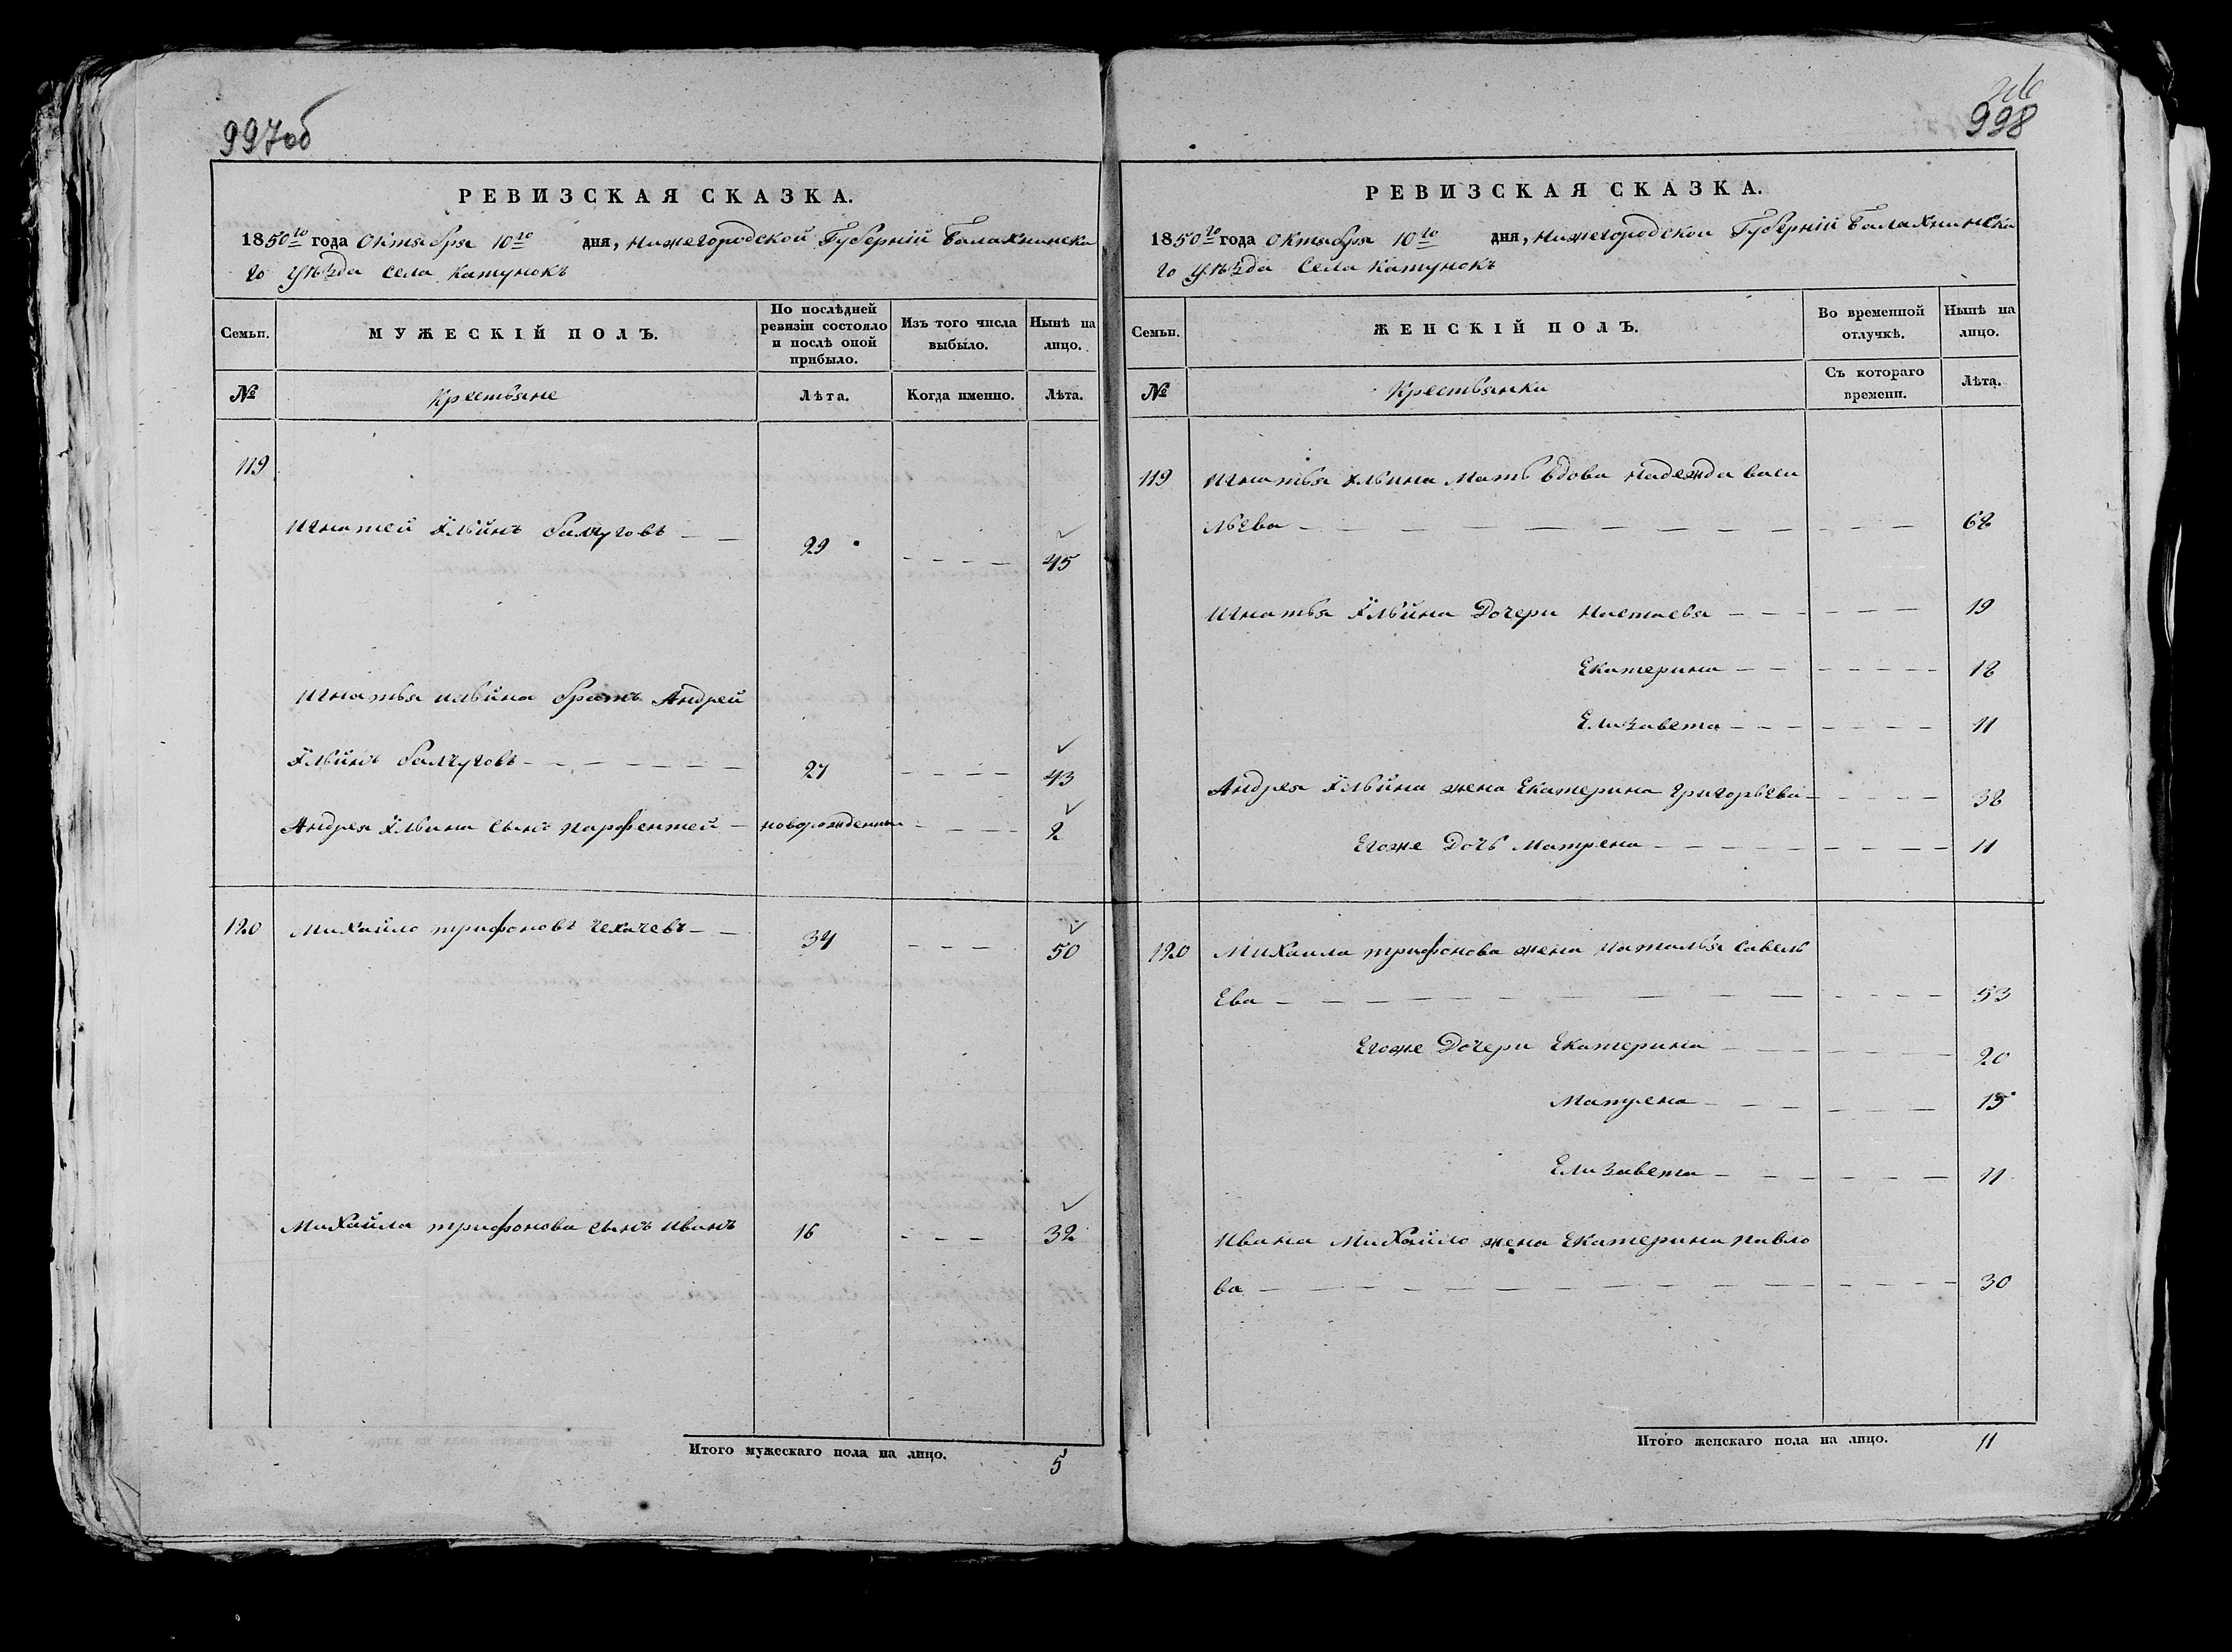 997об
РЕВИЗСКАЯ СКАЗКА.
1850го года Октября 10го дня, Нижегородской Губерній Балахнинска
го уѣзда села Катунокъ
Семьи. МУЖЕСКІЙ ПОЛЪ. По послѣдней ревизіи состояло и послѣ оной прибыло. Изъ того числа выбыло. Нынѣ на лицо.
№ Крестьяне Лѣта. Когда именно. Лѣта.
119
Игнатей Ильинъ балчуговъ 29 45
Игнатья ильина братъ Андрей
Ильинъ балчуговъ 27 43
Андрея Ильина сынъ парфентей новорожденный 2
120 Михайло трифоновъ чехачевъ 34 50
Михайла трифонова сынъ иванъ 16 32
Итого мужескаго пола на лицо. 5
998
РЕВИЗСКАЯ СКАЗКА.
1850го года Октября 10го дня, Нижегородской Губерній Балахнинска
го уѣзда Села Катунокъ
Семьи. ЖЕНСКІЙ ПОЛЪ. Во временной отлучкѣ. Нынѣ на лицо.
№ Крестьянки Съ котораго времени. Лѣта.
119 Игнатья Ильина Мать вдова надежда васи
льева 68
Игнатья Ильина Дочери Настасья 19
Екатерина 18
Елизавета 11
Андрея Ильина жена Екатерина григорьева 38
Егоже Дочь Матрена 11
120 Михаила трифонова жена наталья савель
Ева 53
Егоже Дочери Екатерина 20
Матрена 15
Елизавета 11
Ивана Михайло жена Екатерина павло
ва 30
Итого женскаго пола на лицо. 11